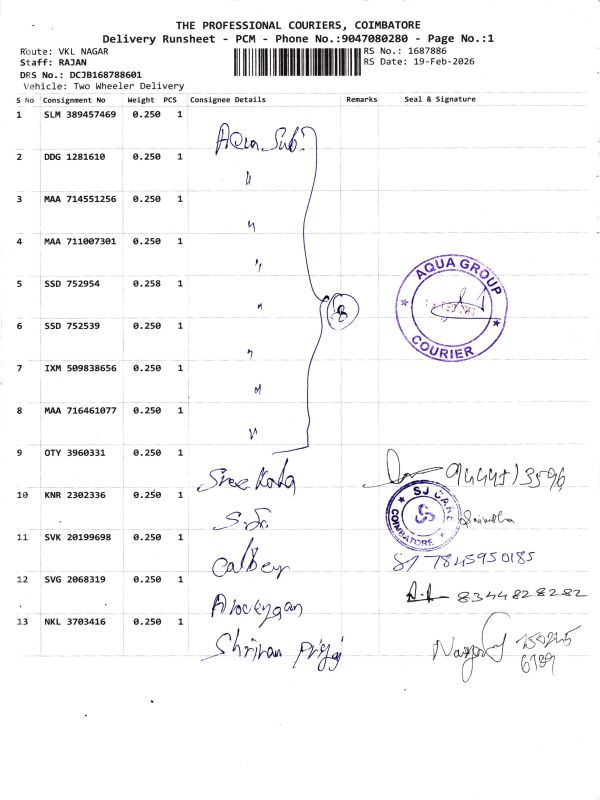 THE PROFESSIONAL COURIERS, COIMBATORE
Delivery Runsheet - PCM - Phone No.:9047080280 - Page No.:1
Route: VKL NAGAR RS No.: 1687886
Staff: RAJAN RS Date: 19-Feb-2026
DRS No.: DCJB168788601
Vehicle: Two Wheeler Delivery
S No Consignment No Weight PCS Consignee Details Remarks Seal & Signature
1 SLM 389457469 0.250 1
Aqua Sub
2 DDG 1281610 0.250 1
"
3 MAA 714551256 0.250 1
"
4 MAA 711007301 0.250 1
"
5 SSD 752954 0.258 1
" 8 AQUA GROUP COURIER
6 SSD 752539 0.250 1
"
7 IXM 509838656 0.250 1
"
8 MAA 716461077 0.250 1
"
9 OTY 3960331 0.250 1
Sree
10 KNR 2302336 0.250 1
SJ CARE COIMBATORE
11 SVK 20199698 0.250 1
Calber 7845950185
12 SVG 2068319 0.250 1
8344828282
13 NKL 3703416 0.250 1
Shriram Priya